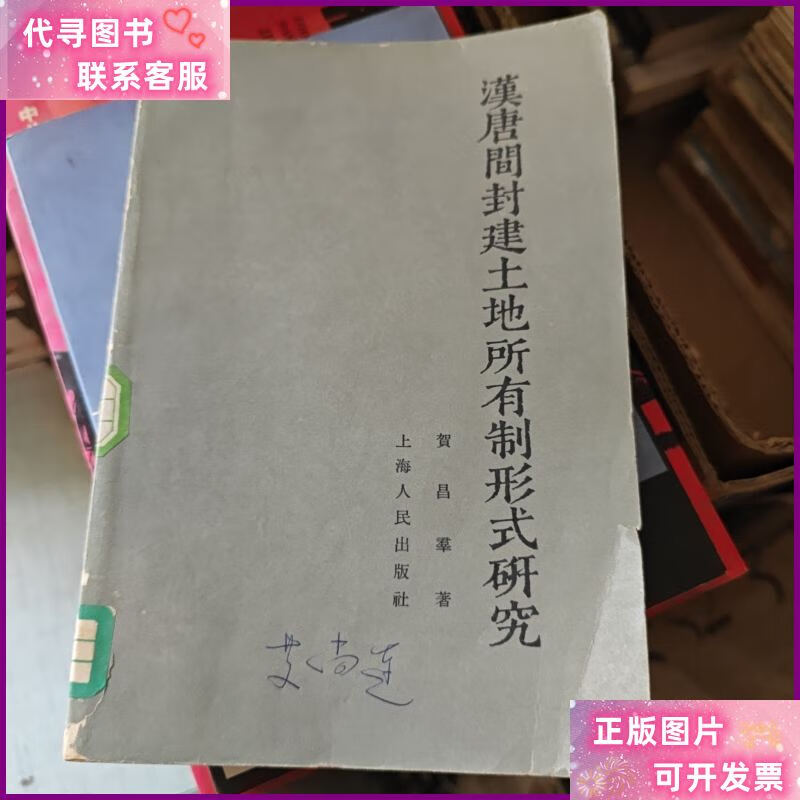 代寻图书
联系客服
漢唐間封建土地所有制形式研究
賀昌羣著
上海人民出版社
艾尚连
正版图片
可开发票